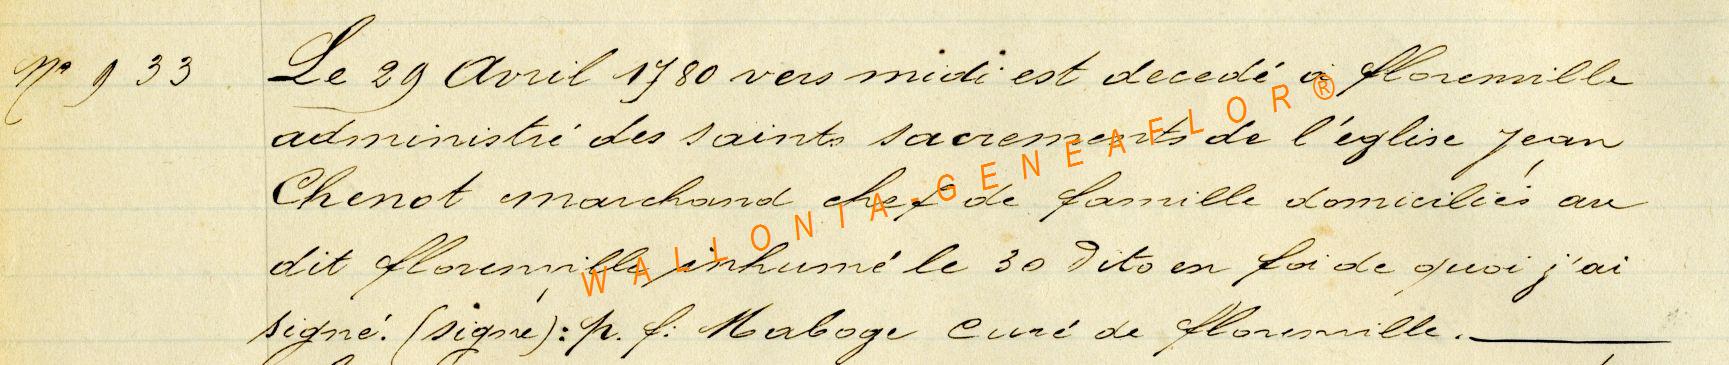 N° 933 Le 29 Avril 1780 vers midi est decedé à florenville
administré des saints sacrements de l'église Jean
Chenot marchand chef de famille domiciliés au
dit florenville inhumé le 30 Dito en foi de quoi j'ai
signé. (signé): p. f: Maboge Curé de florenville.
WALLONIA-GENEAFLOR®